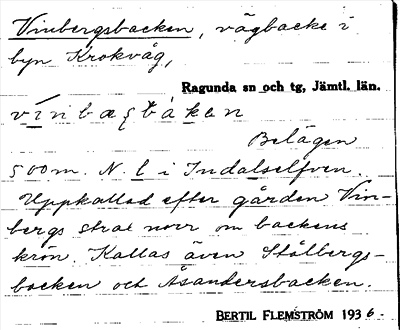 Vinbergsbacken, vägbacke i
byn Krokvåg,
Ragunda sn och tg, Jämtl. län.
Belägen
500 m. N. l i Indalselfven.
Uppkallad efter gården Vin-
bergs strax norr om backens
krön. Kallas även Stålbergs-
backen och Åsandersbacken.
BERTIL FLEMSTRÖM 1936.